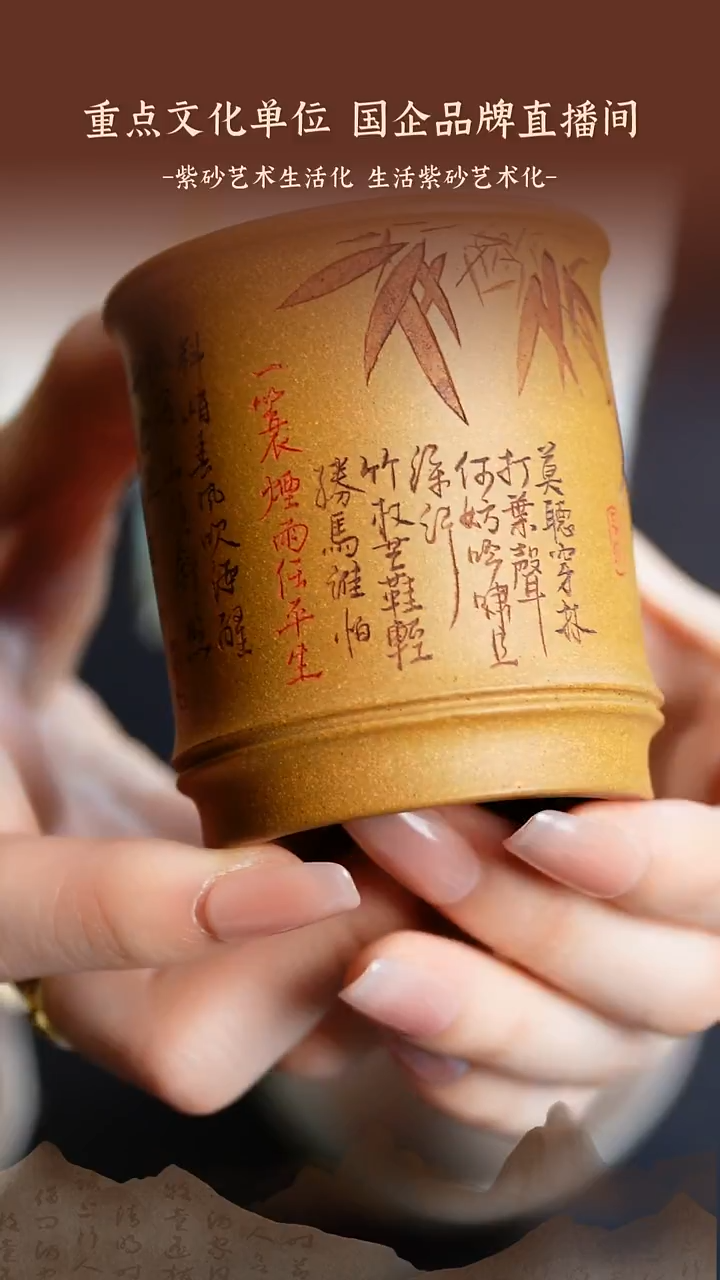 重点文化单位 国企品牌直播间
-紫砂艺术生活化 生活紫砂艺术化-
莫聽穿林
打葉聲
何妨吟嘯且
徐行
竹杖芒鞋輕
勝馬誰怕
一蓑煙雨任平生
料峭春風吹酒醒